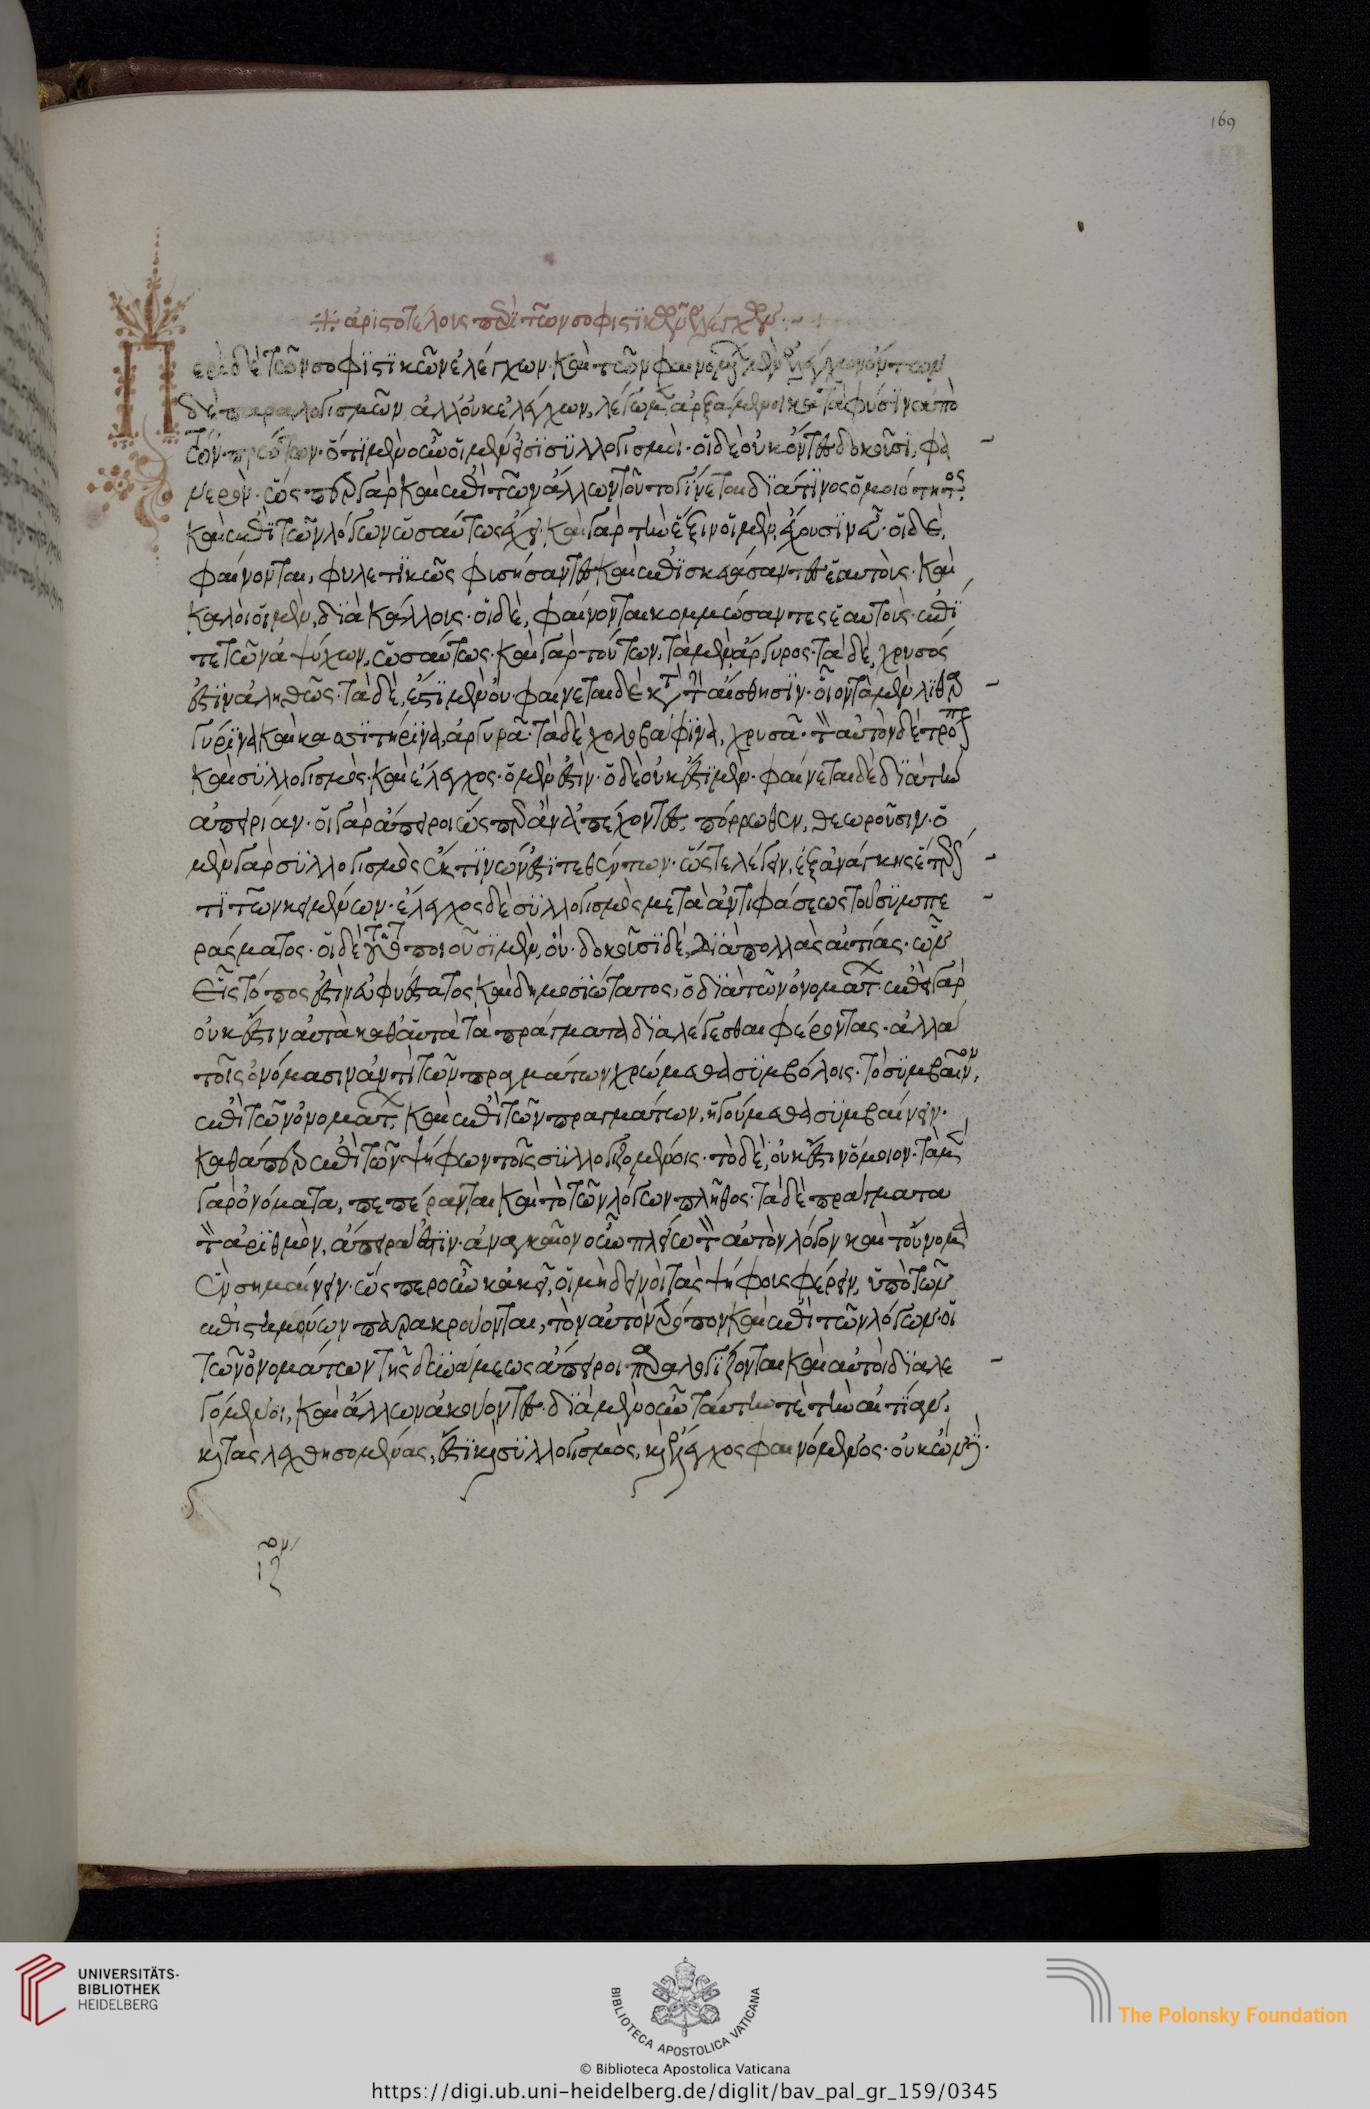 169
ἀριστοτέλους περὶ τῶν σοφιστικῶν ἐλέγχων
Περὶ δὲ τῶν σοφϊστϊκῶν ἐλέγχων· καὶ τῶν φαινομένων μὲν ἐλέγχων ὄντων
δὲ παραλογισμῶν ἀλλ' οὐκ ἐλέγχων, λέγωμεν ἀρξάμενοι κατὰ φύσϊν ἀπὸ
τῶν πρώτων· ὅτϊ μὲν οὖν οἱ μὲν εἰσὶ συλλογισμοὶ· οἱ δὲ οὐκ ὄντες δοκοῦσϊ, φα
νερὸν· ὥς περ γὰρ καὶ ἐπὶ τῶν ἄλλων τοῦτο γίνεται διά τϊνος ὁμοιότητος·
καὶ ἐπὶ τῶν λόγων ὡσαύτως ἔχει· καὶ γὰρ τὴν ἕξιν οἱ μὲν, ἔχουσϊν εὖ· οἱ δὲ,
φαίνονται, φυλετϊκῶς φισήσαντες καὶ ἐπισκευάσαντες ἑαυτοὺς· καὶ
καλοὶ οἱ μὲν, διὰ κάλλους· οἱ δὲ, φαίνονται κομμώσαντες ἑαυτοὺς· ἐπί
τε τῶν ἀψύχων, ὡσαύτως· καὶ γὰρ τούτων, τὰ μὲν ἄργυρος· τὰ δὲ, χρυσός
ἐστϊν ἀληθῶς· τὰ δὲ, ἔστϊ μὲν οὔ· φαίνεται δὲ κατὰ τὴν αἴσθησϊν· οἷον τὰ μὲν λϊθαρ
γύρϊνα καὶ κασϊτηρϊνα, ἀργυρᾶ· τὰ δὲ χολοβάφϊνα, χρυσᾶ· τὸν αὐτὸν δὲ τρόπον
καὶ συλλογισμὸς· καὶ ἔλεγχος· ὁ μὲν ἐστὶν· ὁ δὲ οὐκ ἔστϊ μὲν· φαίνεται δὲ διὰ τὴν
ἀπειρίαν· οἱ γὰρ ἄπειροι ὥς περ ἂν ἀπέχοντες, πόρρωθεν, θεωροῦσιν· ὁ
μὲν γὰρ συλλογισμὸς ἐκ τϊνῶν ἐστϊ τεθέντων· ὥστε λέγειν, ἐξ ἀνάγκης ἕτερόν
τϊ τῶν κειμένων· ἔλεγχος δὲ συλλογισμὸς μετὰ ἀντιφάσεως τοῦ συμπε
ράσματος· οἱ δὲ τοῦτο ποιοῦσϊ μὲν, οὔ· δοκοῦσϊ δὲ, διὰ πολλὰς αἰτίας· ὧν
εἷς τόπος ἐστὶν εὐφυέστατος καὶ δημοσϊώτατος, ὁ διὰ τῶν ὀνομάτων· ἐπεὶ γὰρ
οὐκ ἔστιν αὐτὰ καθ' αὑτὰ τὰ πράγματα διαλέγεσθαι φέροντας· ἀλλὰ
τοῖς ὀνόμασιν ἀντὶ τῶν πραγμάτων χρώμεθα συμβόλοις· τὸ συμβαῖνον,
ἐπὶ τῶν ὀνομάτων, καὶ ἐπὶ τῶν πραγμάτων, ἡγούμεθα συμβαίνειν·
καθάπερ ἐπὶ τῶν ψήφων τοῖς συλλογιζομένοις· τὸ δὲ, οὐκ ἔστιν ὅμοιον· τὰ μὲν
γὰρ ὀνόματα, πεπέρανται καὶ τὸ τῶν λόγων πλῆθος· τὰ δὲ πράγματα
τὸν ἀρϊθμὸν, ἄπειρά ἐστϊν· ἀναγκαῖον οὖν πλείω τὸν αὐτὸν λόγον καὶ τοὔνομα
ἓν σημαίνειν· ὥς περ οὖν κἀκεῖ, οἱ μὴ δεινοὶ τὰς ψήφους φέρειν, ὑπὸ τῶν
ἐπιστημόνων παρακρούονται, τὸν αὐτὸν τρόπον καὶ ἐπὶ τῶν λόγων· οἱ
τῶν ὀνομάτων τῆς δυνάμεως ἄπειροι παραλογίζονται καὶ αὐτοὶ διαλε
γόμενοι, καὶ ἄλλων ἀκούοντες· διὰ μὲν οὖν ταύτην τε τὴν αἰτίαν,
καὶ τὰς λεχθησομένας, ἔστϊ καὶ συλλογισμὸς, καὶ ἔλεγχος φαινόμενος· οὐκ ὢν δὲ·
ιζον
UNIVERSITÄTS-
BIBLIOTHEK
HEIDELBERG
BIBLIOTECA APOSTOLICA VATICANA
The Polonsky Foundation
© Biblioteca Apostolica Vaticana
https://digi.ub.uni-heidelberg.de/diglit/bav_pal_gr_159/0345